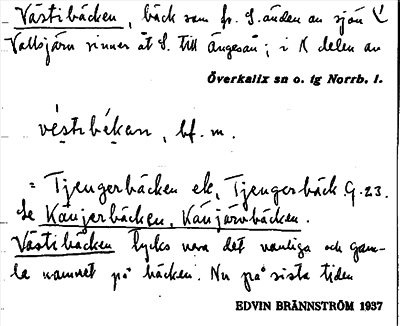 Västibäcken, bäck som fr. S.änden av sjön
Vallsjärv rinner åt S. till Ängesån; i N delen av
Överkalix sn o. tg Norrb. l.
véstibékan, bf. m.
= Tjengerbäcken ek, Tjengersbäck G. 23.
Se Känjerbäcken, Känjärvbäcken.
Västibäcken tycks vara det vanliga och gam-
la namnet på bäcken. Nu på sista tiden
EDVIN BRÄNNSTRÖM 1937